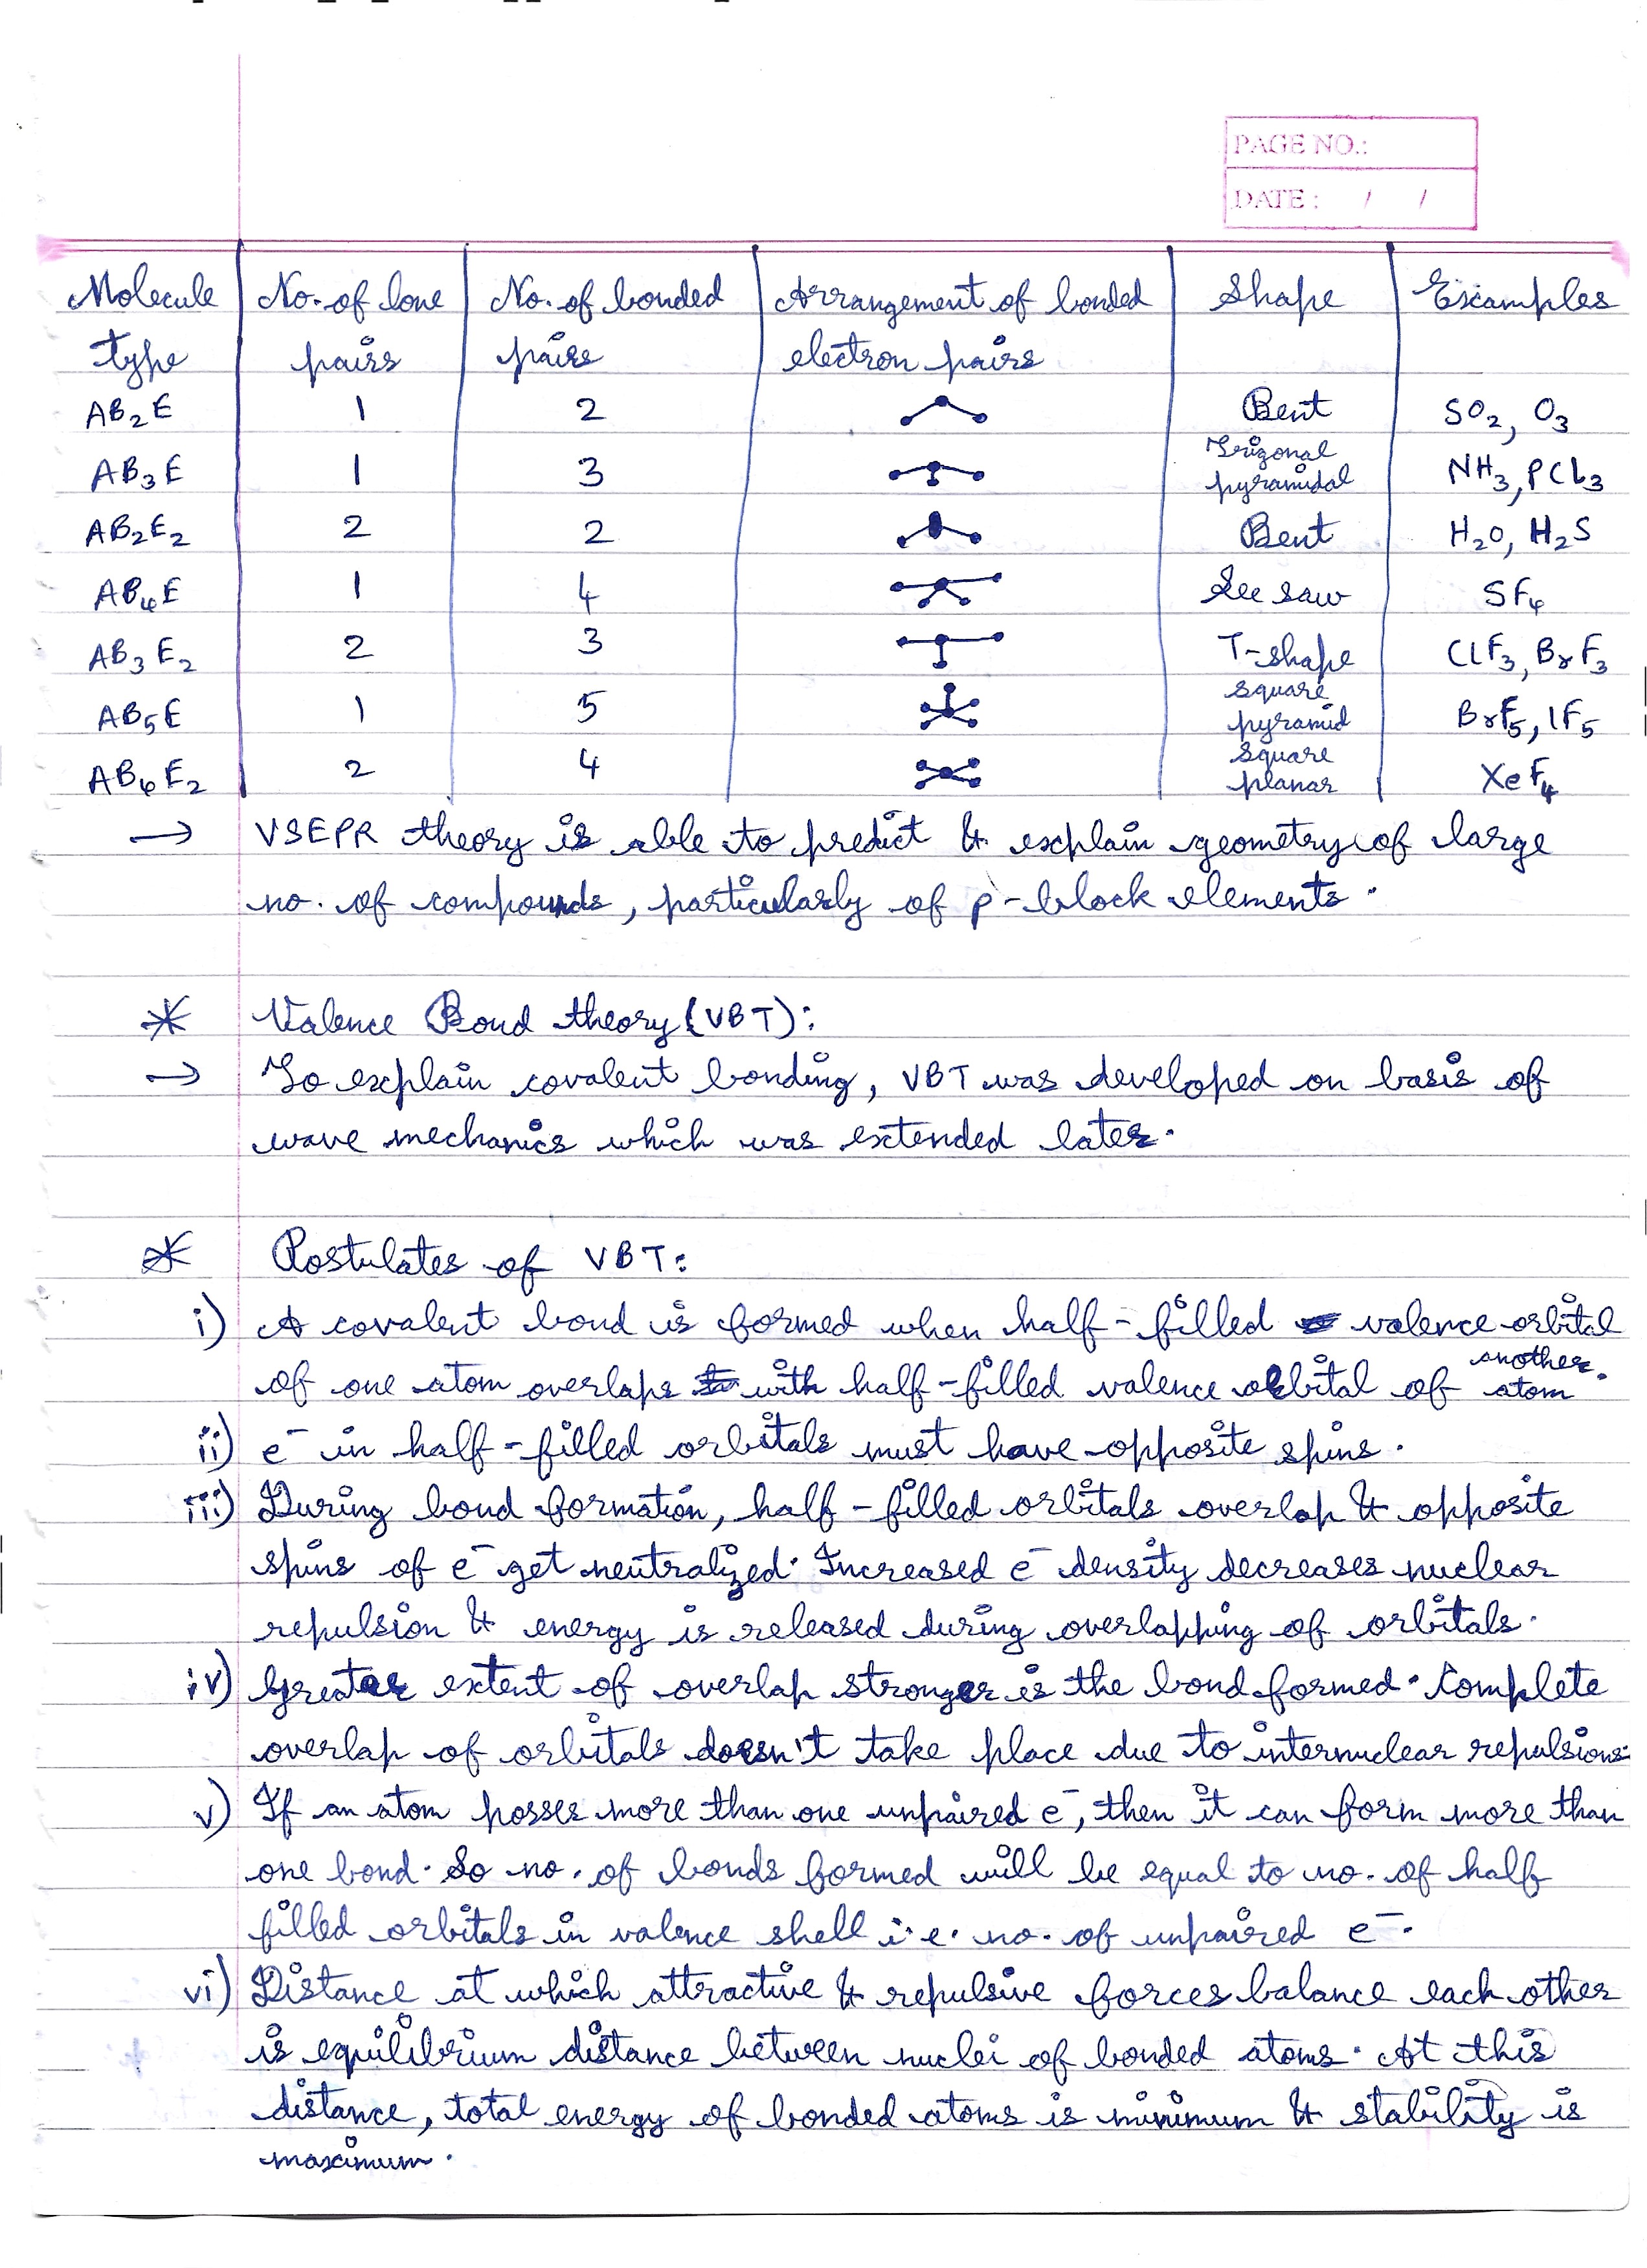 PAGE NO.:
DATE : / /
Molecule type | No. of lone pairs | No. of bonded pairs | Arrangement of bonded electron pairs | Shape | Examples
AB₂E 1 2 Bent SO₂, O₃
AB₃E 1 3 Trigonal pyramidal NH₃, PCl₃
AB₂E₂ 2 2 Bent H₂O, H₂S
AB₄E 1 4 See saw SF₄
AB₃E₂ 2 3 T-shape ClF₃, BrF₃
AB₅E 1 5 square pyramid BrF₅, IF₅
AB₄E₂ 2 4 square planar XeF₄
→ VSEPR theory is able to predict & explain geometry of large
no. of compounds, particularly of p-block elements.
* Valence Bond theory (VBT):
→ To explain covalent bonding, VBT was developed on basis of
wave mechanics which was extended later.
* Postulates of VBT:
i) A covalent bond is formed when half-filled valence orbital
of one atom overlaps with half-filled valence orbital of another atom.
ii) e⁻ in half-filled orbitals must have opposite spins.
iii) During bond formation, half-filled orbitals overlap & opposite
spins of e⁻ get neutralized. Increased e⁻ density decreases nuclear
repulsion & energy is released during overlapping of orbitals.
iv) Greater extent of overlap stronger is the bond formed. Complete
overlap of orbitals doesn't take place due to internuclear repulsions.
v) If an atom posses more than one unpaired e⁻, then it can form more than
one bond. So no. of bonds formed will be equal to no. of half
filled orbitals in valence shell i.e. no. of unpaired e⁻.
vi) Distance at which attractive & repulsive forces balance each other
is equilibrium distance between nuclei of bonded atoms. At this
distance, total energy of bonded atoms is minimum & stability is
maximum.